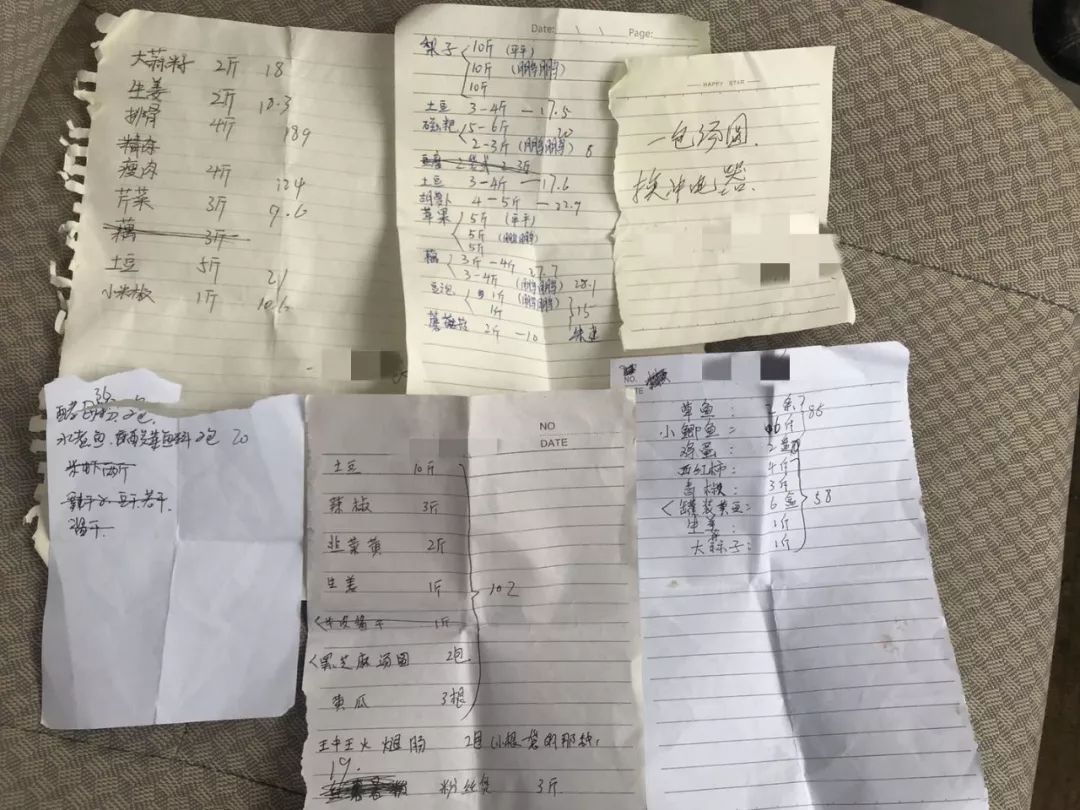 大蒜籽 2斤 18
生姜 2斤 10.3
排骨 4斤 189
精肉
瘦肉 4斤 124
芹菜 3斤 9.6
藕 3斤
土豆 5斤 21
小米椒 1斤 10.6
Date: \ \ Page:
梨子 10斤 (平平)
10斤 (鹏鹏)
10斤
土豆 3-4斤 -17.5
糍粑 5-6斤 20
2-3斤 (鹏鹏) 8
2-3斤
土豆 3-4斤 -17.6
胡萝卜 4-5斤 -22.9
苹果 5斤 (平平)
5斤 (鹏鹏)
5斤
藕 3斤-4斤 27.7
3-4斤 (鹏鹏) 28.1
豆泡 1斤 (鹏鹏)
1斤 15
2斤 -10
HAPPY STAR
一包汤圆.
换冲电器.
2包.
水煮鱼、 2包 20
米虾两斤
豆干若干.
NO
DATE
土豆 10斤
辣椒 3斤
韭菜黄 2斤
生姜 1斤
1斤
<黑芝麻汤圆 2包
黄瓜 3根
102
王中王火腿肠 2包 小根一袋的那种,
19.
粉丝 3斤
NO.
草鱼: 2条 85
小鲫鱼:
鸡蛋: 2
西红柿: 4斤
青椒: 3斤
<罐装黄豆: 6盒 58
生姜: 1斤
大蒜子: 1斤